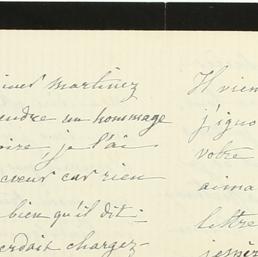 martinez
endre un hommage
oire je l'ai
cœur car rien
bien qu'il dit:
erdait chargez-
Il vien
j'igno
votre
aima
lettre